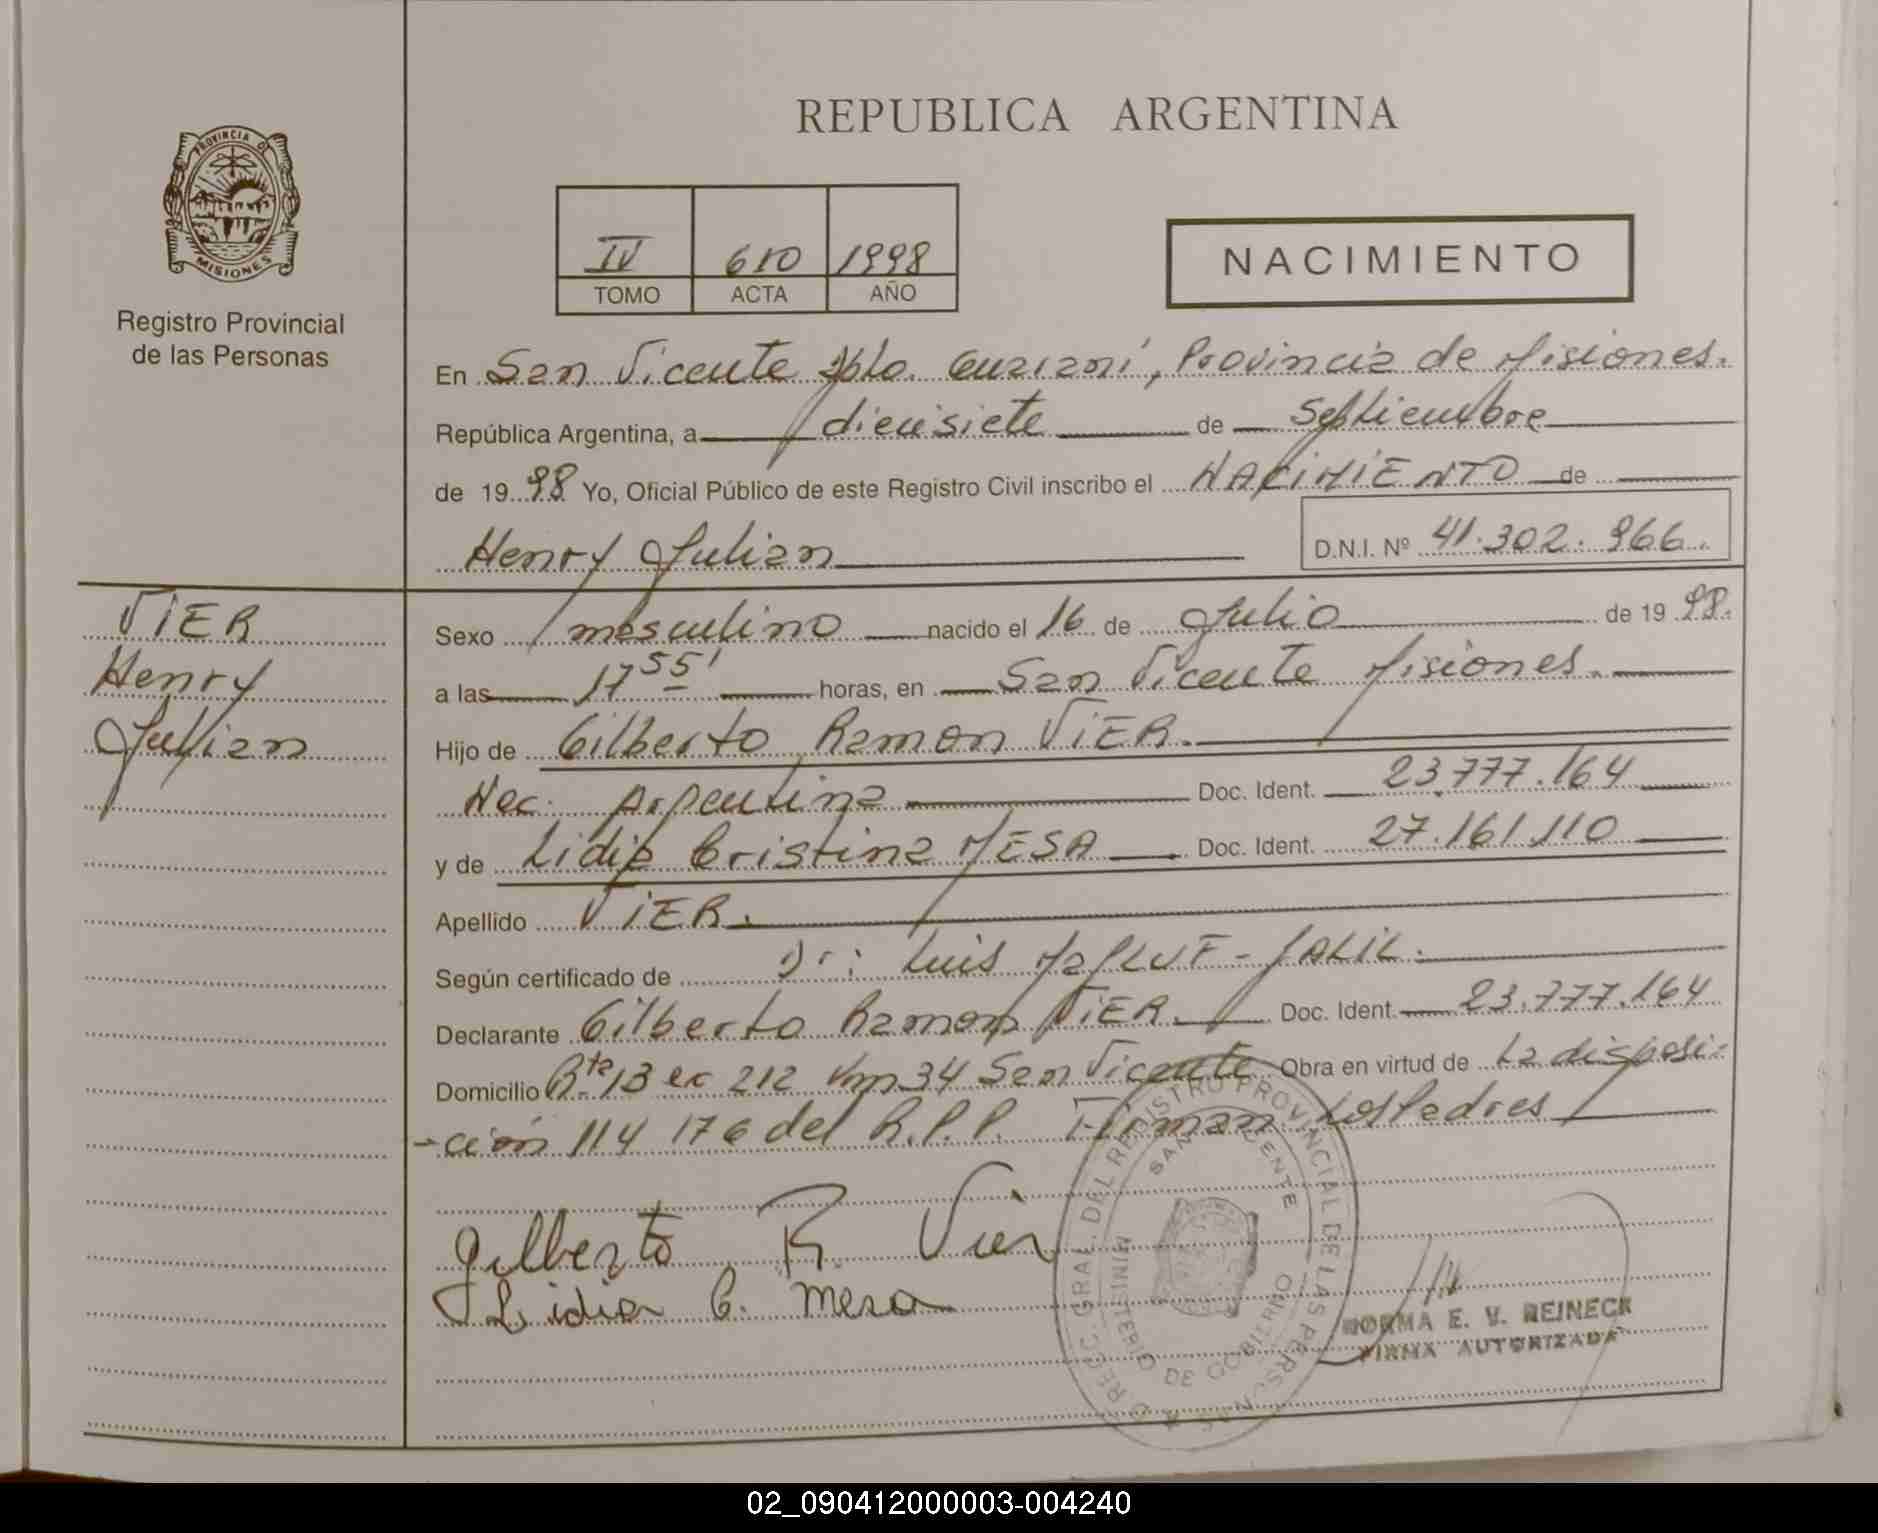 REPUBLICA ARGENTINA
PROVINCIA DE
MISIONES
Registro Provincial
de las Personas
IV 610 1998
TOMO ACTA AÑO
NACIMIENTO
En San Vicente Dpto. Guarani, Provincia de Misiones.
República Argentina, a diecisiete de Septiembre
de 1998 Yo, Oficial Público de este Registro Civil inscribo el NACIMIENTO de
Henry Julian D.N.I. Nº 41.302.966.
VIER
Henry
Julian
Sexo masculino nacido el 16 de Julio de 1998.
a las 17 55' horas, en San Vicente Misiones.
Hijo de Gilberto Ramon VIER.
Nac. Argentina Doc. Ident. 23.777.164
y de Lidia Cristina MESA Doc. Ident. 27.161.110
Apellido VIER.
Según certificado de Dr: Luis MaPLUF-JALIL.
Declarante Gilberto Ramon VIER. Doc. Ident. 23.777.164
Domicilio Rta 13 ex 212 Km 34 San Vicente Obra en virtud de La disposi-
-ción 114 176 del R.P.P. Firman Los Padres
Gilberto R. Vier
Lidia C. Mesa
DIRECC. GRAL. DEL REGISTRO PROVINCIAL DE LAS PERSONAS
SAN VICENTE
MINISTERIO DE GOBIERNO
NORMA E. V. REINECK
FIRMA AUTORIZADA
02_090412000003-004240